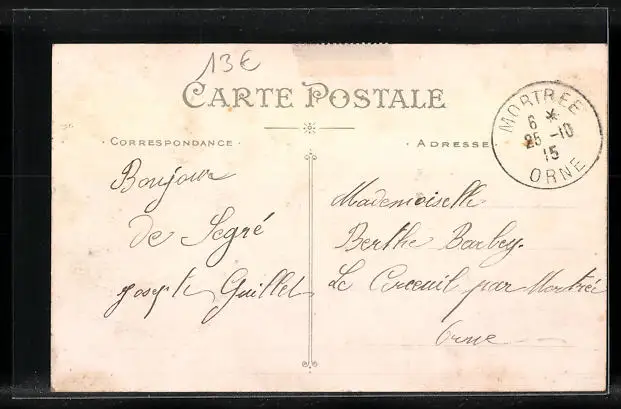 13€
CARTE POSTALE
· CORRESPONDANCE ·
· ADRESSE
MORTRÉE
6 *
25 -10
15
ORNE
Bonjour
de Segré
Joseph Guillet
Mademoiselle
Berthe Barbey.
Le Cercueil par Mortrée
Orne